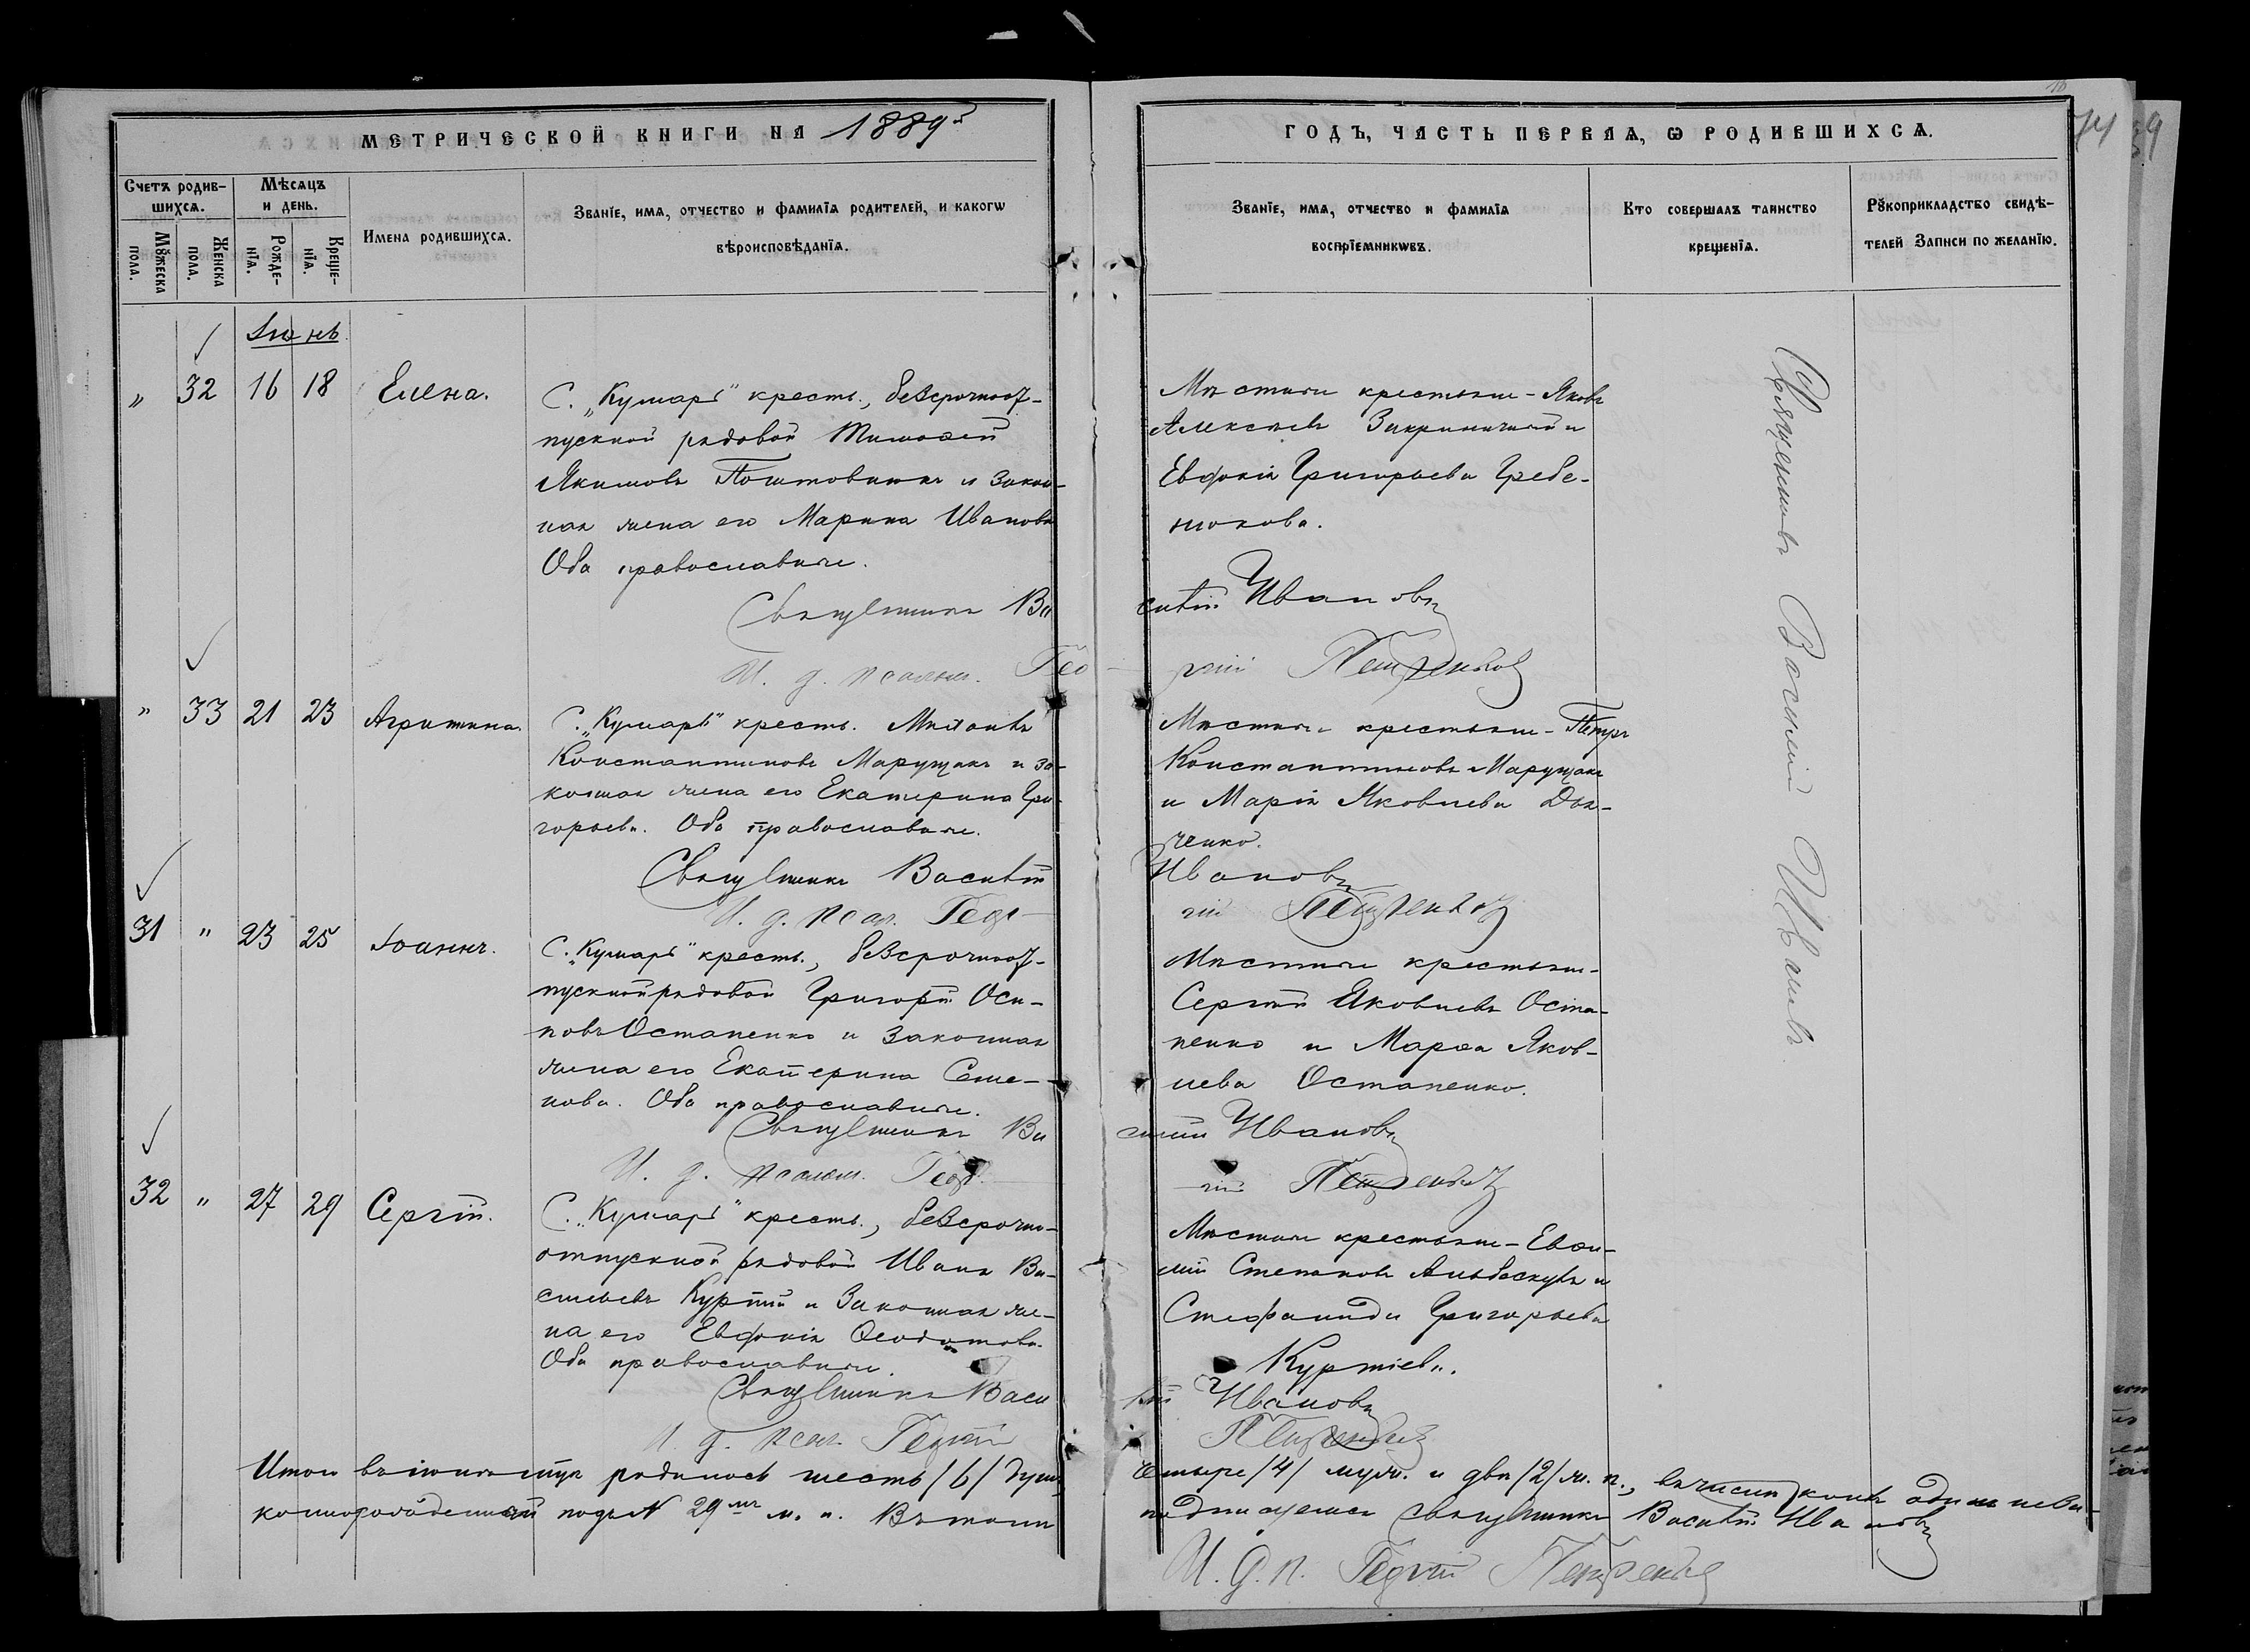 МЕТРИЧЕСКОЙ КНИГИ НА 1889й
ГОДЪ, ЧАСТЬ ПЕРВАѦ, Ѡ РОДИВШИХСѦ.
Счетъ родив-
шихсѧ.
Мꙋжеска
пола.
Женска
пола.
Мѣсѧцъ
и день.
Рожде-
нїѧ.
Креще-
нїѧ.
Имена родившихсѧ.
Званїе, имѧ, отчество и фамилїѧ родителей, и какогѡ
вѣроисповѣданїѧ.
Званїе, имѧ, отчество и фамилїѧ
воспрїемникѡвъ.
Кто совершалъ таинство
крещенїѧ.
Рꙋкоприкладство свидѣ-
телей Записи по желанїю.
74
Іюнь
" 32 16 18 Елена.
С. „Кумары" крестн., безсрочноот-
пускной рядовой Тимоѳей
Якимовъ Поштовикъ и закон-
ная жена его Марина Иванова
Оба православные.
Мѣстные крестьяне - Яковъ
Алексѣевъ Закриничный и
Евфросинія Григорьева Гребе-
нюкова.
Священникъ Василій Ивановъ
И. д. псалом. Георгій Петренко
" 33 21 23 Агрипина.
С. „Кумары" крестн. Михаилъ
Константиновъ Марущакъ и за-
конная жена его Екатерина Гри-
горьева. Оба православные.
Мѣстные крестьяне - Петръ
Константиновъ Марущакъ
и Марія Яковлева Дья-
ченко.
Священникъ Василій Ивановъ
И. д. псал. Георгій Петренко
31 " 23 25 Іоаннъ.
С. „Кумары" крестн., безсрочноот-
пускной рядовой Григорій Оси-
повъ Остапенко и законная
жена его Екатерина Семе-
нова. Оба православные.
Мѣстные крестьяне -
Сергій Яковлевъ Оста-
пенко и Марѳа Яков-
лева Остапенко.
Священникъ Василій Ивановъ
И. д. псалом. Георгій Петренко
32 " 27 29 Сергій.
С. „Кумары" крестн., безсрочно-
отпускной рядовой Иванъ Ва-
сильевъ Куртій и законная же-
на его
Оба православные.
Мѣстные крестьяне - Евѳи-
мій Степановъ и
Стефанида Григорьева
Куртіева.
Священникъ Василій Ивановъ
И. д. псал. Георгій Петренко
Священникъ Василій Ивановъ.
Итого въ іюнѣ родилось шесть /6/ душъ четыре /4/ муж. и двѣ /2/ ж. п., въ числѣ коихъ одинъ
подъ N 29мъ м. п. Въ томъ подписуемся священникъ Василій Ивановъ
И. д. п. Георгій Петренко